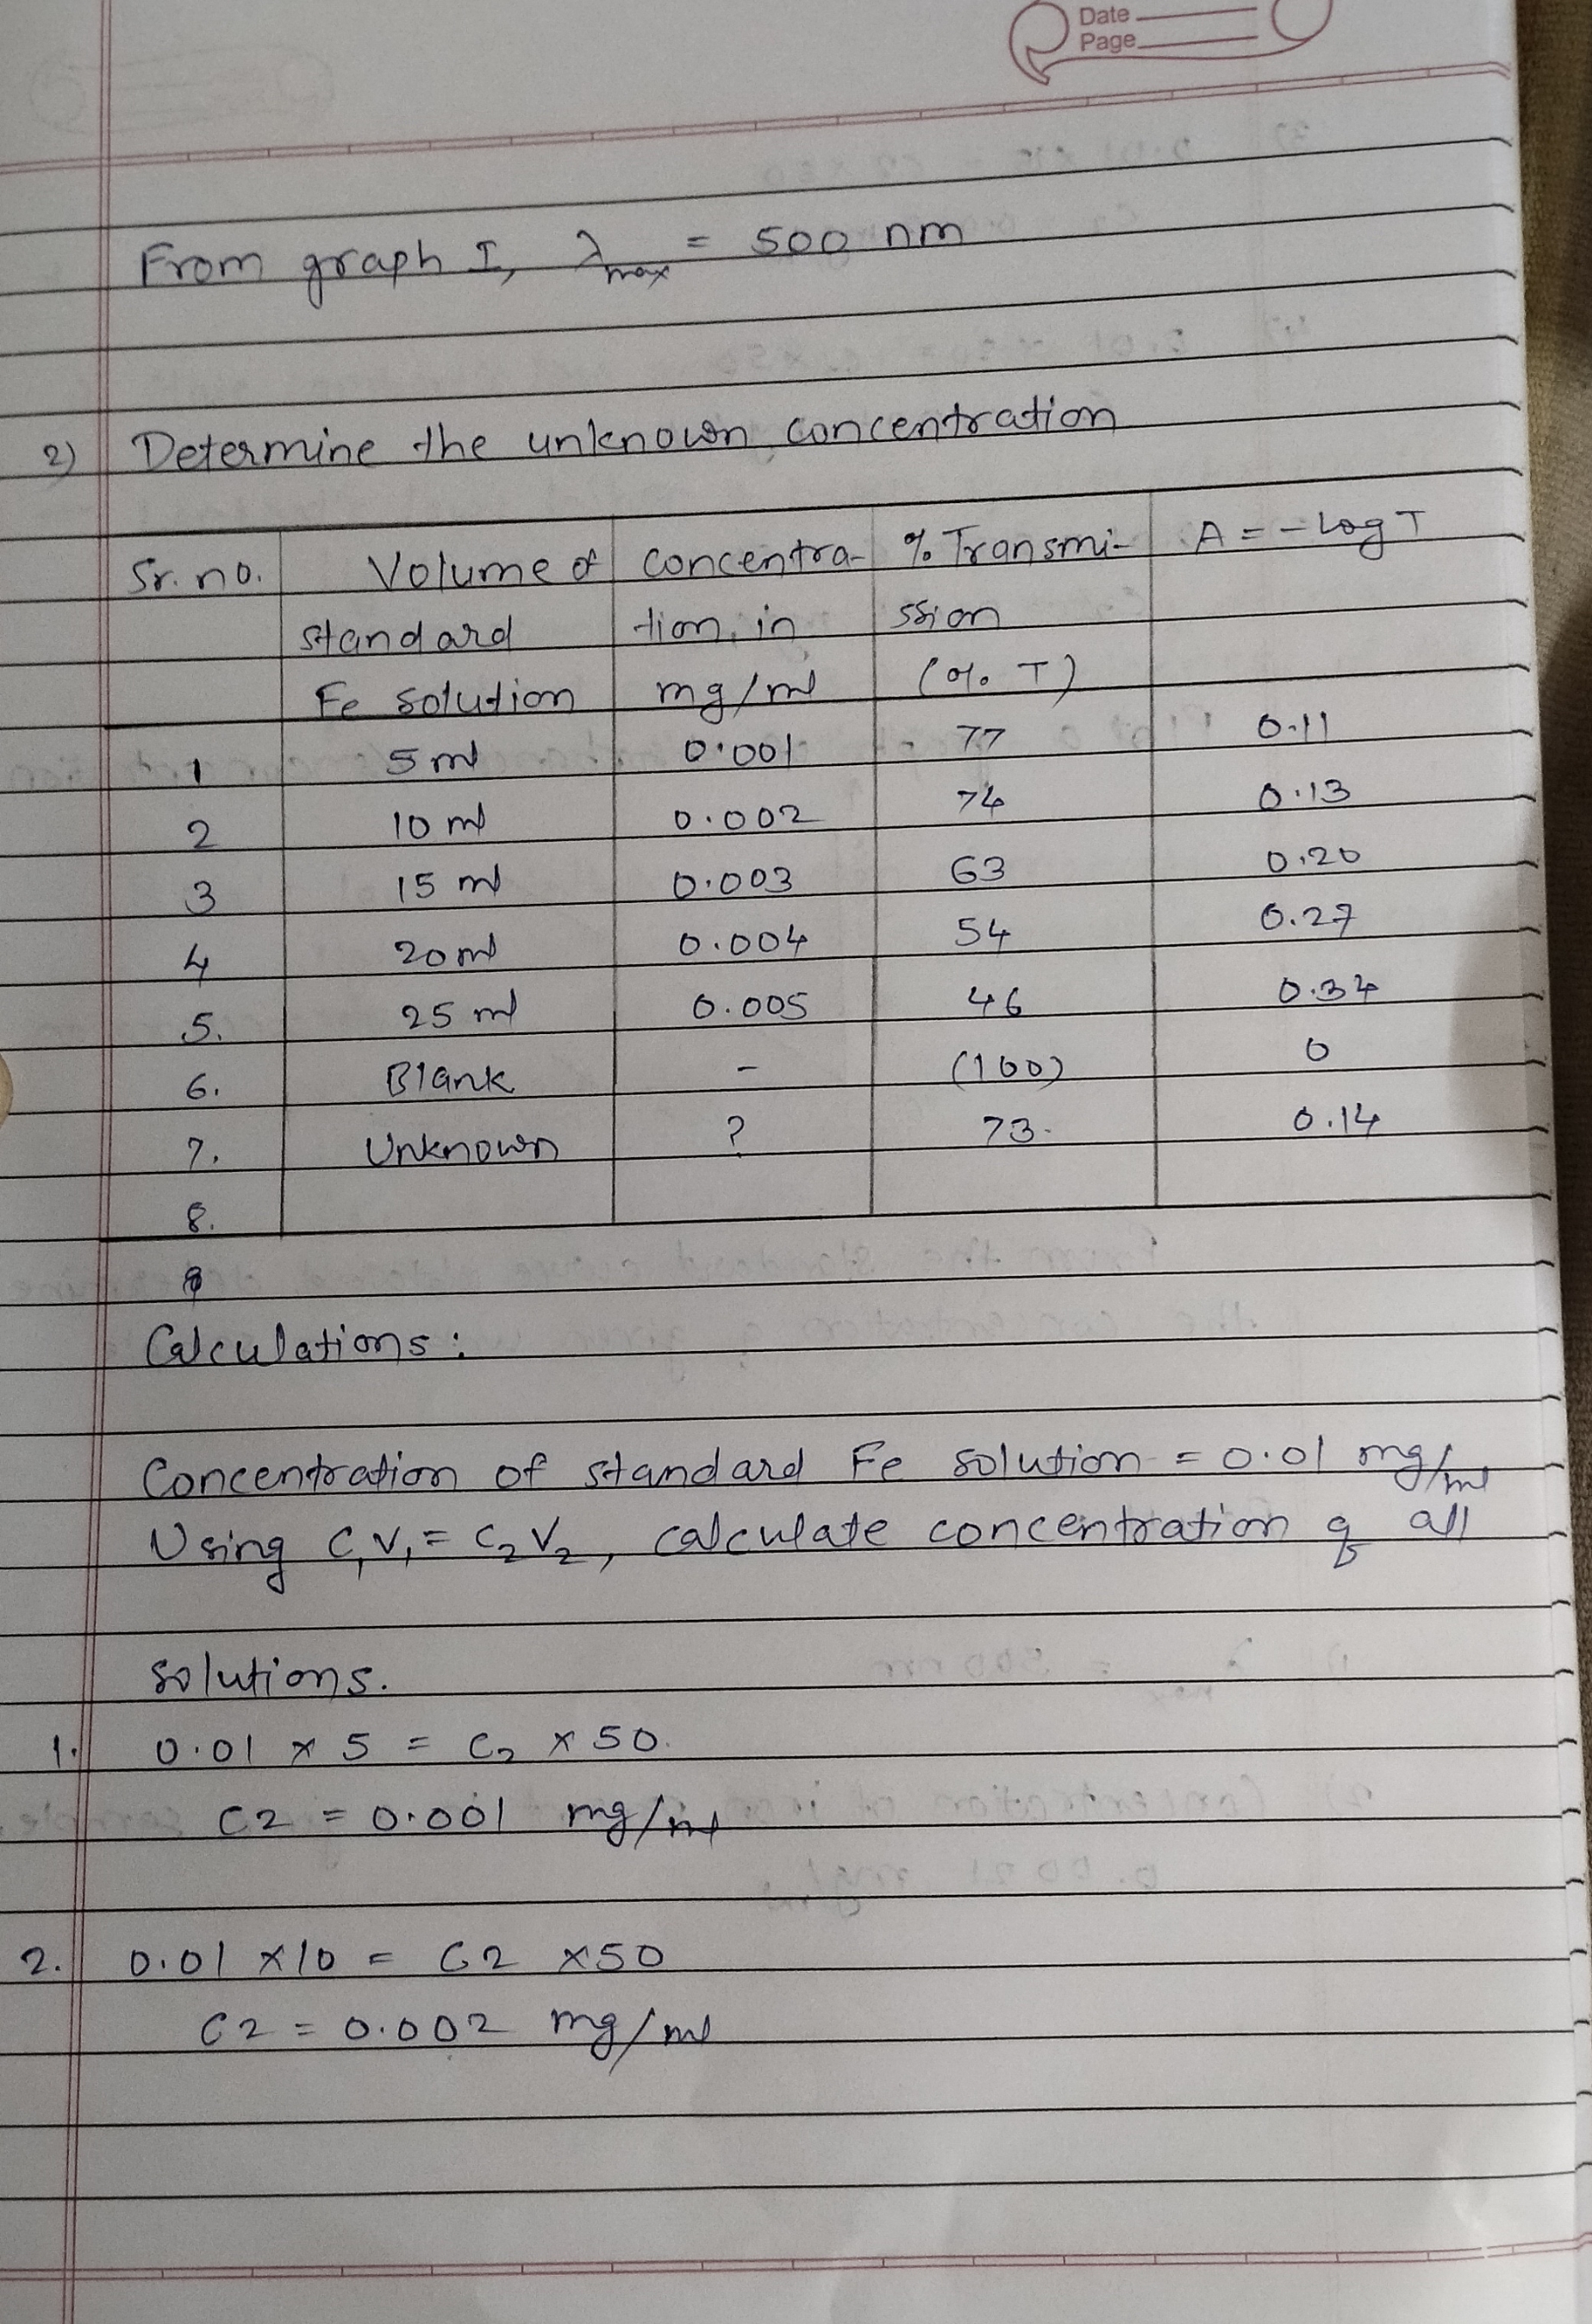 Date
Page
From graph I, λmax = 500 nm
2) Determine the unknown concentration
Sr. no. Volume of concentra- % Transmi- A = - Log T
standard tion, in ssion
Fe solution mg/ml (% T)
1 5 ml 0.001 77 0.11
2 10 ml 0.002 74 0.13
3 15 ml 0.003 63 0.20
4 20 ml 0.004 54 0.27
5. 25 ml 0.005 46 0.34
6. Blank - (100) 0
7. Unknown ? 73. 0.14
8.
Calculations:
Concentration of standard Fe solution = 0.01 mg/ml
Using C₁V₁ = C₂V₂, calculate concentration of all
solutions.
1. 0.01 x 5 = C₂ x 50.
C2 = 0.001 mg/ml
2. 0.01 x 10 = C2 x 50
C2 = 0.002 mg/ml